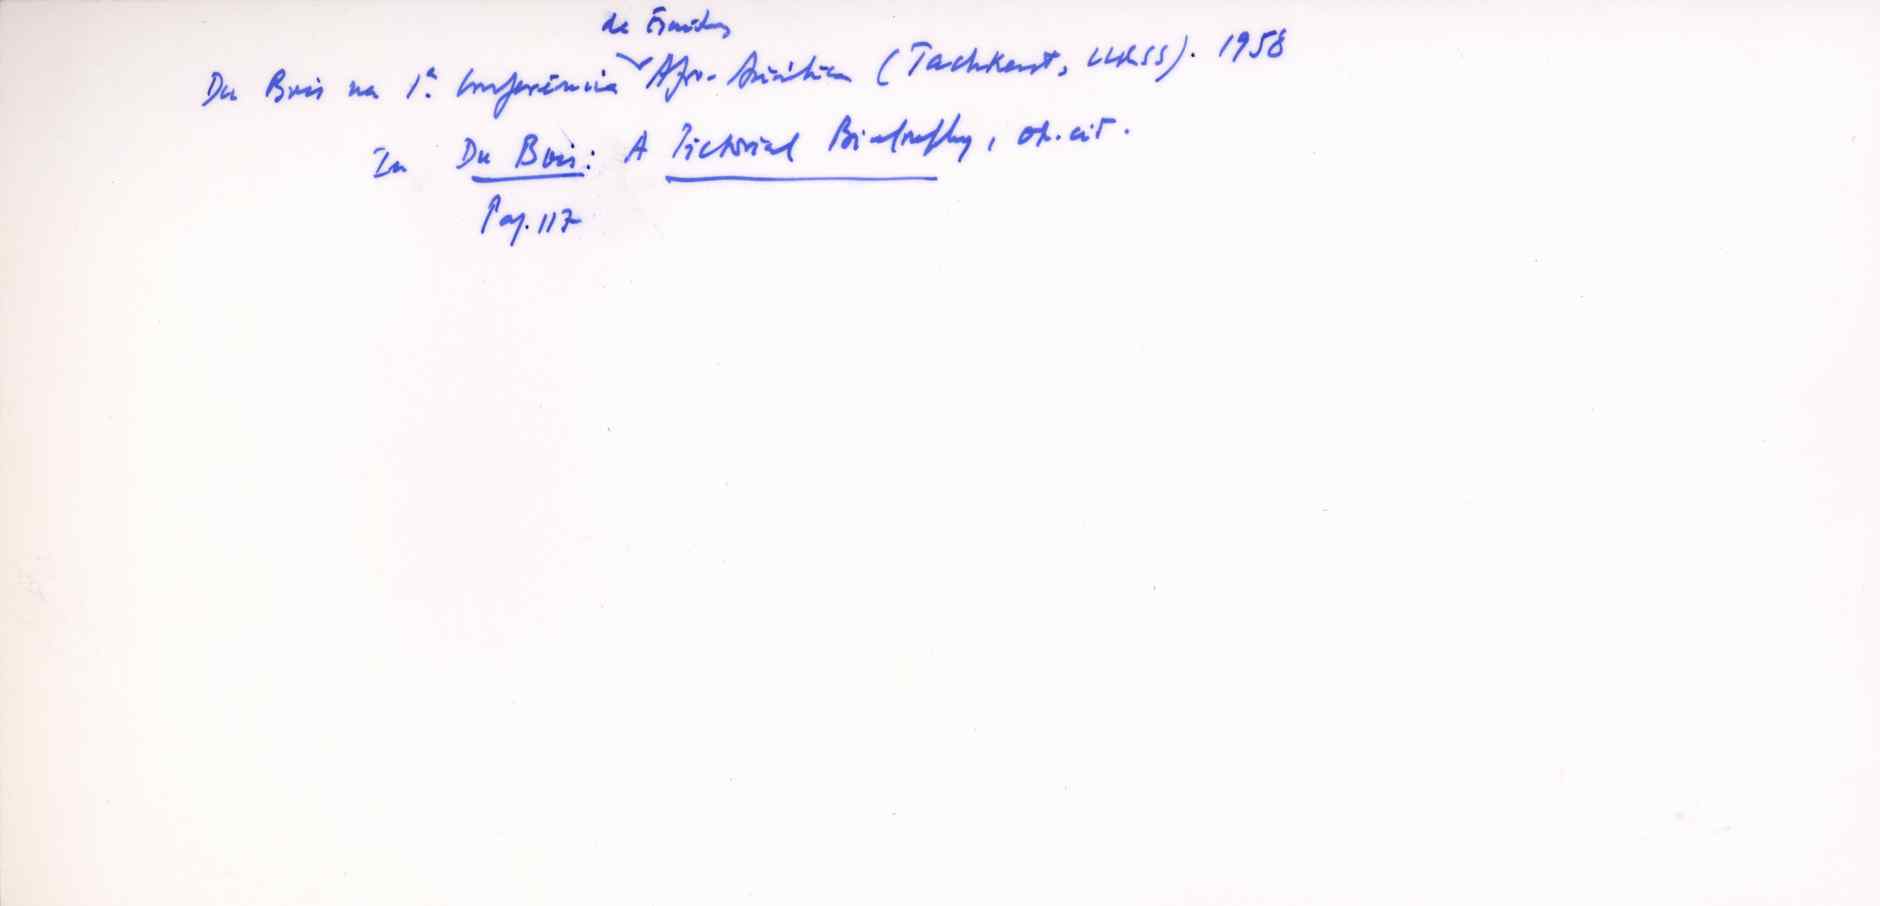 de Escritores
Du Bois na 1ª Conferência Afro-Asiática (Tachkent, URSS). 1958
In Du Bois: A Pictorial Biography, op. cit.
Pag. 117